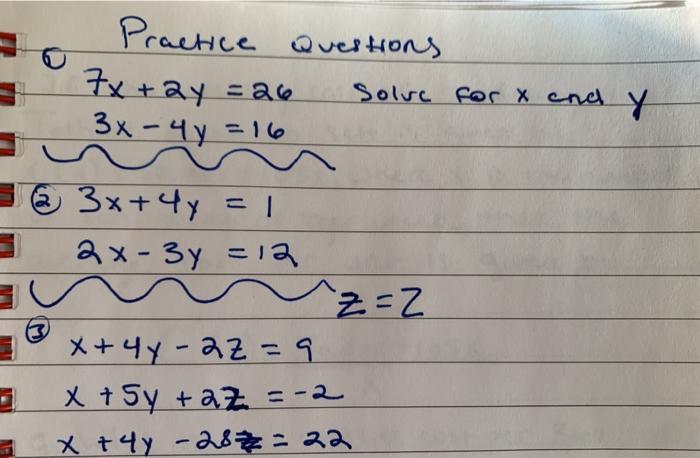 Practice Questions
① 7x + 2y = 26 Solve for x and y
3x - 4y = 16
② 3x + 4y = 1
2x - 3y = 12
z = Z
③ x + 4y - 2z = 9
x + 5y + 2z = -2
x + 4y - 28z = 22